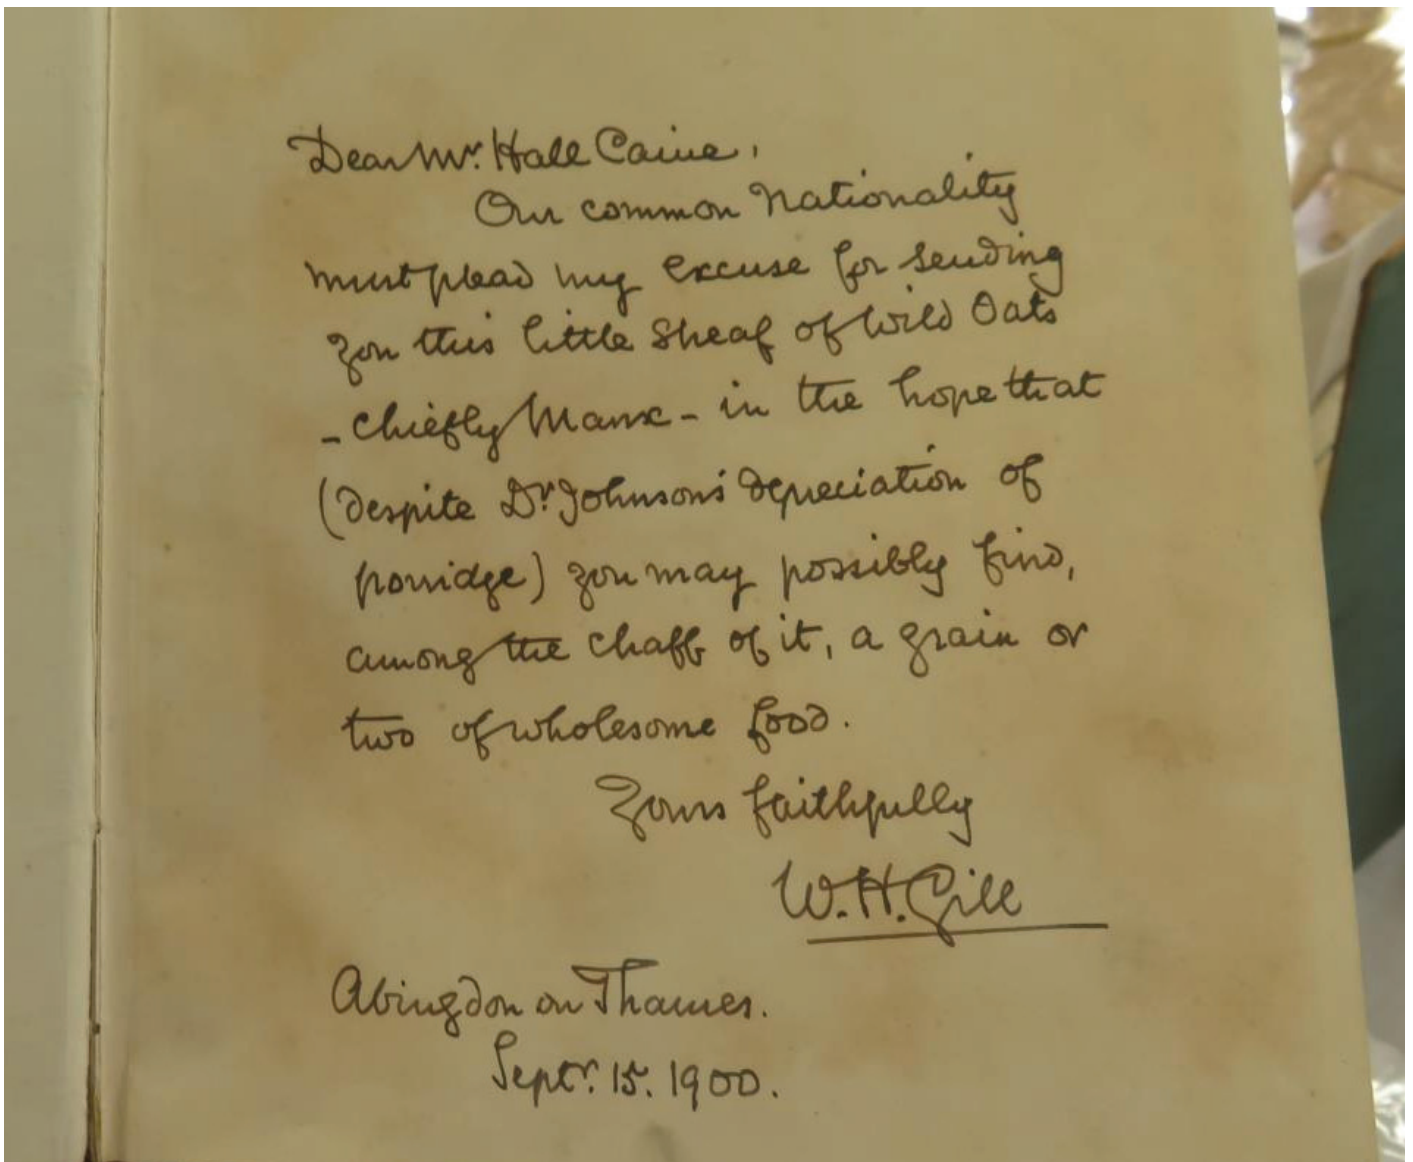 Dear Mr. Hall Caine,
Our common Nationality
must plead my excuse for sending
you this little Sheaf of Wild Oats
- chiefly Manx - in the hope that
(despite Dr. Johnson's depreciation of
porridge) you may possibly find,
among the chaff of it, a grain or
two of wholesome food.
Yours faithfully
W. H. Gill
Abingdon on Thames.
Septr. 15. 1900.